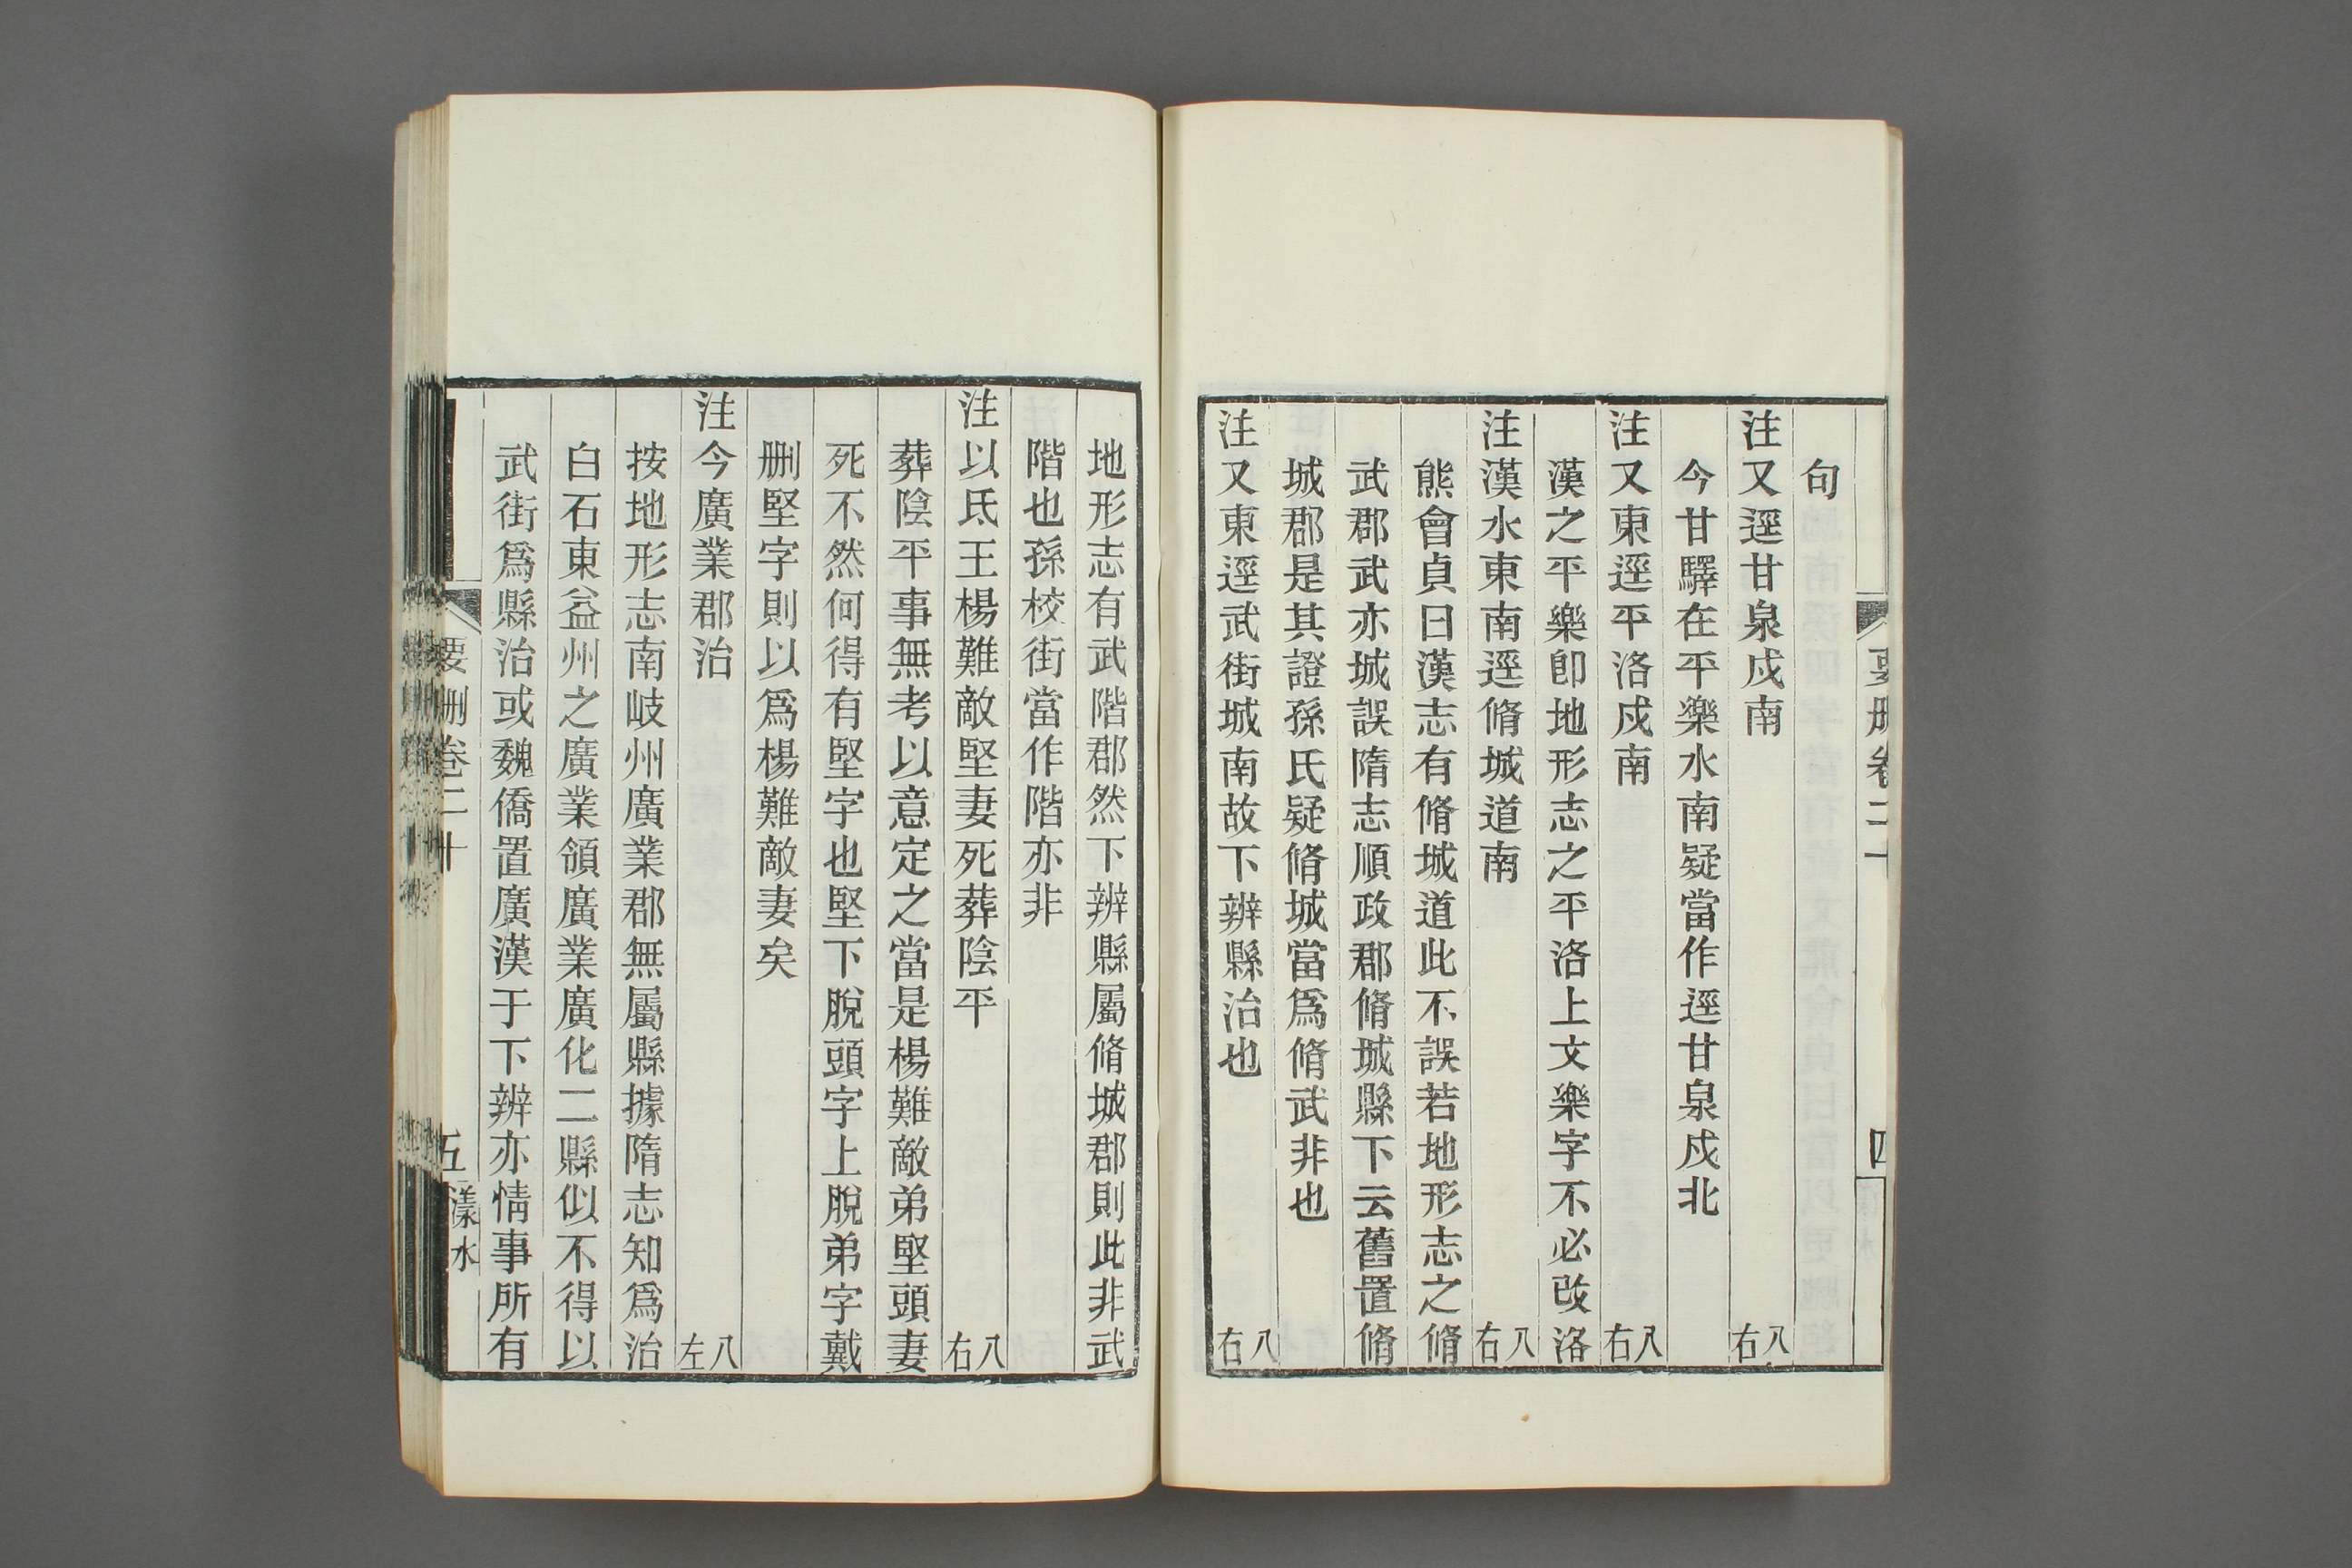 要刪卷二十 四
句
注又逕甘泉戍南 八右
今甘驛在平樂水南疑當作逕甘泉戍北
注又東逕平洛戍南 八右
漢之平樂卽地形志之平洛上文樂字不必改洛
注漢水東南逕脩城道南 八右
熊會貞曰漢志有脩城道此不誤若地形志之脩
武郡武亦城誤隋志順政郡脩城縣下云舊置脩
城郡是其證孫氏疑脩城當爲脩武非也
注又東逕武街城南故下辨縣治也 八右
地形志有武階郡然下辨縣屬脩城郡則此非武
階也孫校街當作階亦非
注以氐王楊難敵堅妻死葬陰平 八右
葬陰平事無考以意定之當是楊難敵弟堅頭妻
死不然何得有堅字也堅下脫頭字上脫弟字戴
刪堅字則以爲楊難敵妻矣
注今廣業郡治 八左
按地形志南岐州廣業郡無屬縣據隋志知爲治
白石東益州之廣業領廣業廣化二縣似不得以
武街爲縣治或魏僑置廣漢于下辨亦情事所有
要刪卷二十 五 漾水